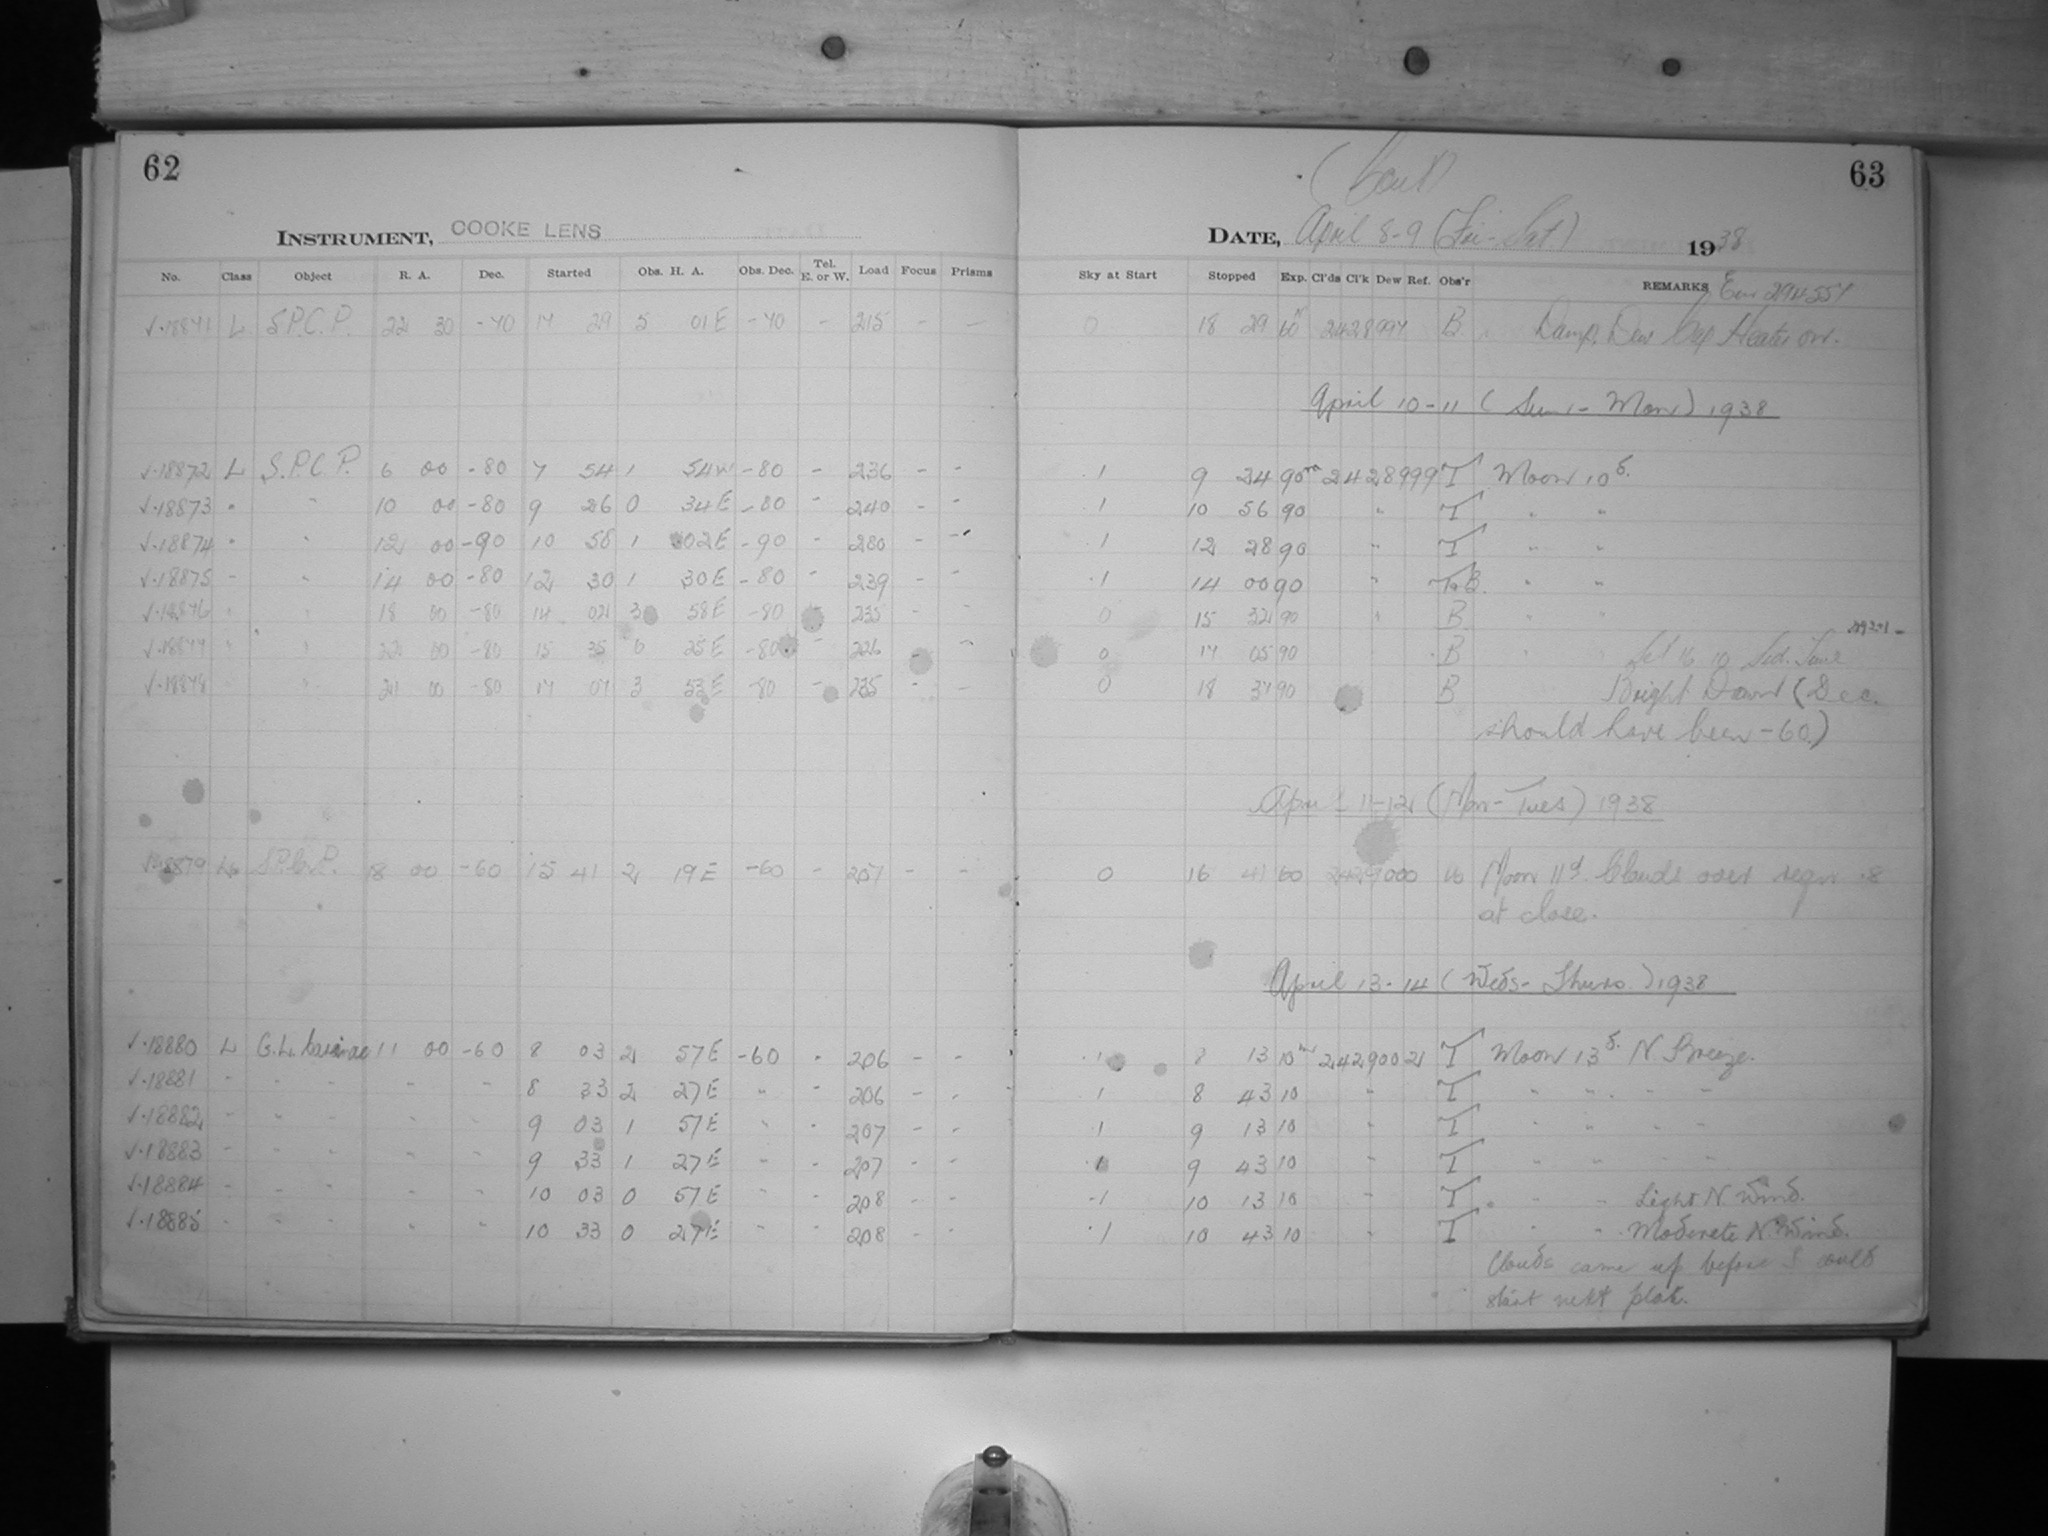 62
INSTRUMENT, COOKE LENS
No. Class Object R. A. Dec. Started Obs. H. A. Obs. Dec. Tel. E. or W. Load Focus Prisms
L S.P.C.P. 22 30 -70 17 29 5 01E -70 - 215 - -
√·18872 L S.P.C.P. 6 00 -80 7 54 1 54W -80 - 236 - -
√·18873 " " 10 00 -80 9 26 0 34E -80 - 240 - -
√·18874 " " 12 00 -90 10 58 1 02E -90 - 280 - -
√·18875 " " 14 00 -80 12 30 1 30E -80 - 239 - -
√·18876 " " 18 00 -80 14 02 3 58E -80 - 235 - -
√·18877 " " 22 00 -80 15 35 6 25E -80 - 226 - -
√·18878 " 21 00 -80 17 07 3 53E -80 - 235 - -
√·18879 18 00 -60 15 41 2 19E -60 - 207 - -
√·18880 L G.L. Carinae 11 00 -60 8 03 2 57E -60 - 206 - -
√·18881 - - - - - 8 33 2 27E " - 206 - -
√·18882 - - - - - 9 03 1 57E " - 207 - -
√·18883 - - - - - 9 33 1 27E " - 207 - -
√·18884 - - - - - 10 03 0 57E " - 208 - -
√·18885 - - - - - 10 33 0 27E " - 208 - -
63
(Con't)
DATE, April 8-9 (Fri-Sat) 1938
Sky at Start Stopped Exp. Cl'ds Cl'k Dew Ref. Obs'r REMARKS
0 18 29 60m 2428997 B Damp. Dew Cap Heater on.
April 10-11 (Sun-Mon) 1938
·1 9 24 90m 2428999 T Moon 10d.
·1 10 56 90 " T " "
·1 12 28 90 " T " "
·1 14 00 90 " T&B. " "
0 15 32 90 " B " "
0 17 05 90 B " Set 16 10 Sid. Time
0 18 37 90 B Bright Dawn (Dec.
should have been -60)
April 11-12 (Mon-Tues) 1938
0 16 41 60 2429000 Moon 11d. Clouds over region ·8
at close.
April 13-14 (Weds-Thurs.) 1938
·1 8 13 10m 2429002 T Moon 13d. N. Breeze.
·1 8 43 10 " T " " - -
·1 9 13 10 " T " " - -
·1 9 43 10 " T " " - -
·1 10 13 10 " T " " Light N. Wind.
·1 10 43 10 " T " " Moderate N. Wind.
Clouds came up before I could
start next plate.